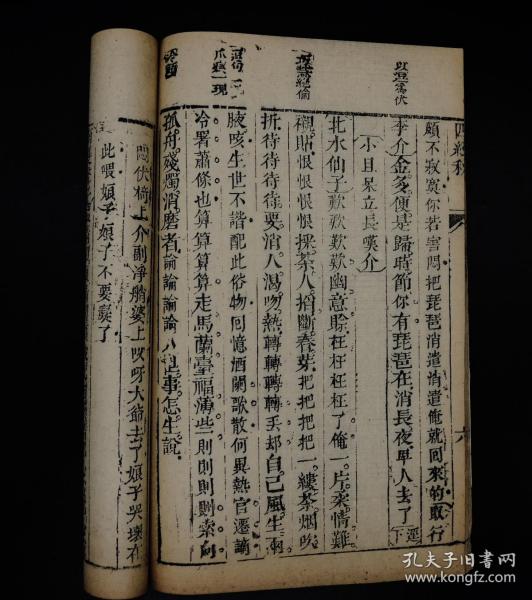 頗不寂寞你若害悶把琵琶消遣消遣俺就回來的取行
李介金多便是歸時節你有琵琶在消長夜早人去了
逕下
小旦呆立長嘆介
北水仙子歎歎歎歎幽意賒枉枉枉枉了俺一片柔情難
襯貼恨恨恨恨採茶人揩斷春芽把把把把一縷茶烟吹
折待待待待要消人渴吻熱轉轉轉轉丟却自己風生兩
腋咳生世不諧配此俗物回憶酒闌歌散何異熱官遷謫
冷署蕭條也算算算算走馬蘭臺福薄些則則則則索向
孤舟殘燭消磨者論論論論八事怎生說
悶伏椅上介副淨艄婆上哎呀大爺去了娘子哭壞在
此喂娘子娘子不要癡了
四絃秋
六
孔夫子旧书网
www.kongfz.com